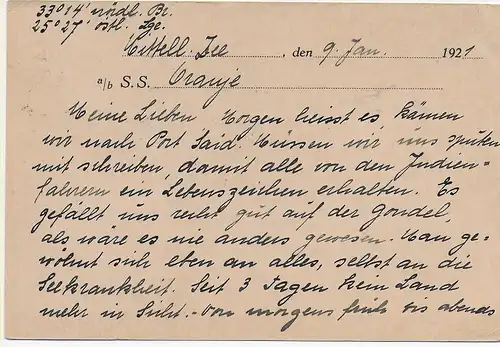 33° 14' nördl. Br.
25° 27' östl. Lge.
Mittell. See, den 9. Jan. 1921
a/b S.S. Oranje
Meine Lieben Morgen heisst es, kämen
wir nach Port Said. Müssen wir uns sputen
mit schreiben, damit alle von den Indien-
fahrern ein Lebenszeichen erhalten. Es
gefällt uns recht gut auf der Gondel,
als wäre es nie anders gewesen. Man ge-
wöhnt sich eben an alles, selbst an die
Seekrankheit. Seit 3 Tagen kein Land
mehr in Sicht. - Von morgens früh bis abends